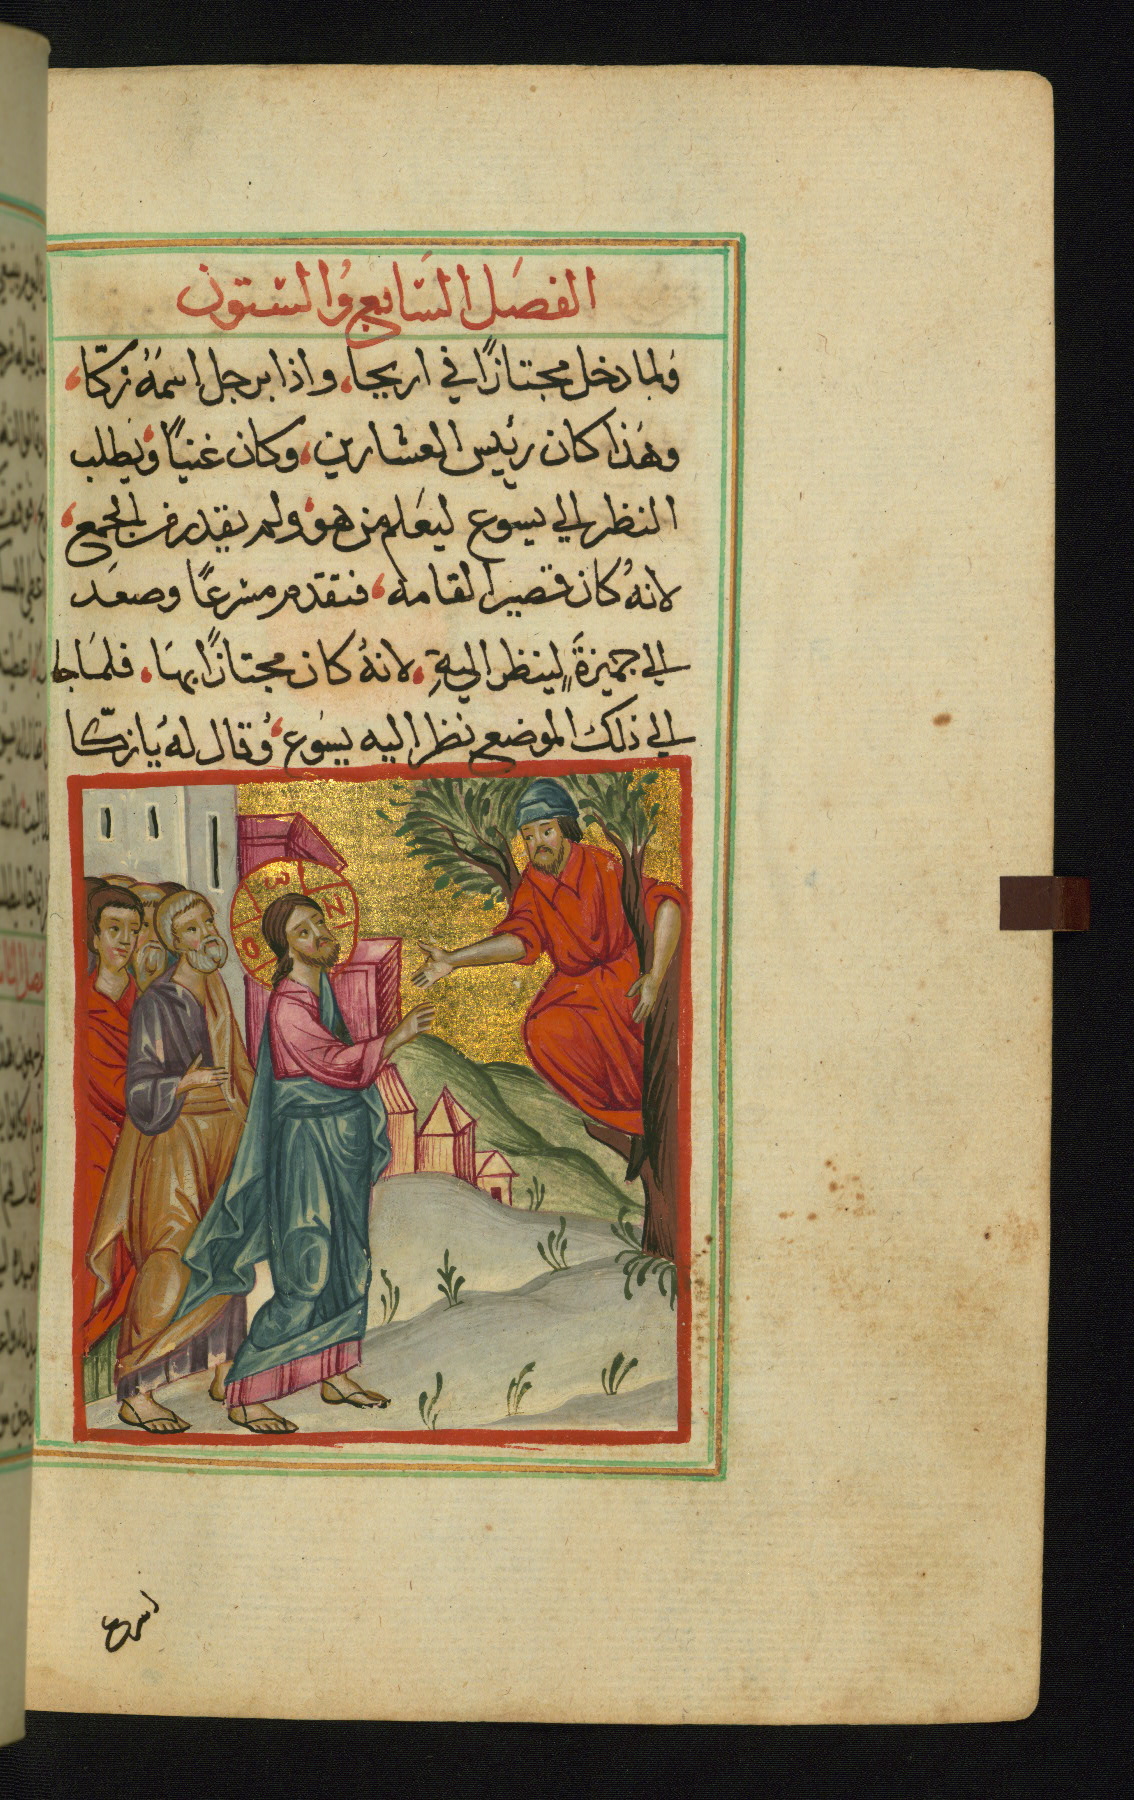 الفصَل السَابع وُالستون
وَلما دخل مجتازًا في اريحيا، واذا برجل اسمهُ زكّا،
وهَذا كان رئيس العشارين، وكان غنيًا، وَيطلب
النظر الي يسوع ليعَلم من هو، ولم يقدر من الجمع،
لانهُ كان قصير القامه، فتقدم مسرعًا وصعَد
الي جميزةً لينظر اليهِ، لانهُ كان مجتازًا بهَا، فلمَا جا
الي ذلك الموضع نظر اليه يسَوع، وُقال لهُ يا زكّا
ω
Ν
Ο
اسرع